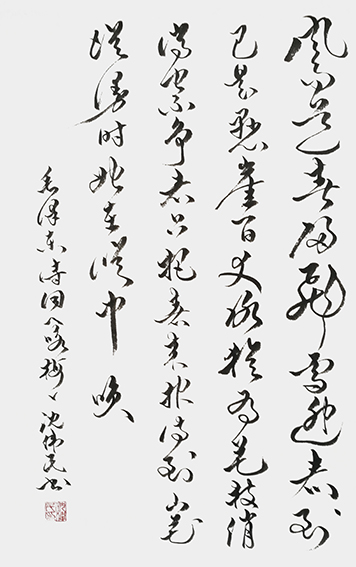 风雨送春归飛雪迎春到
已是悬崖百丈冰犹有花枝俏
俏也不争春只把春来报待到山花
烂漫时她在丛中笑
毛泽东诗词咏梅沈伟民书